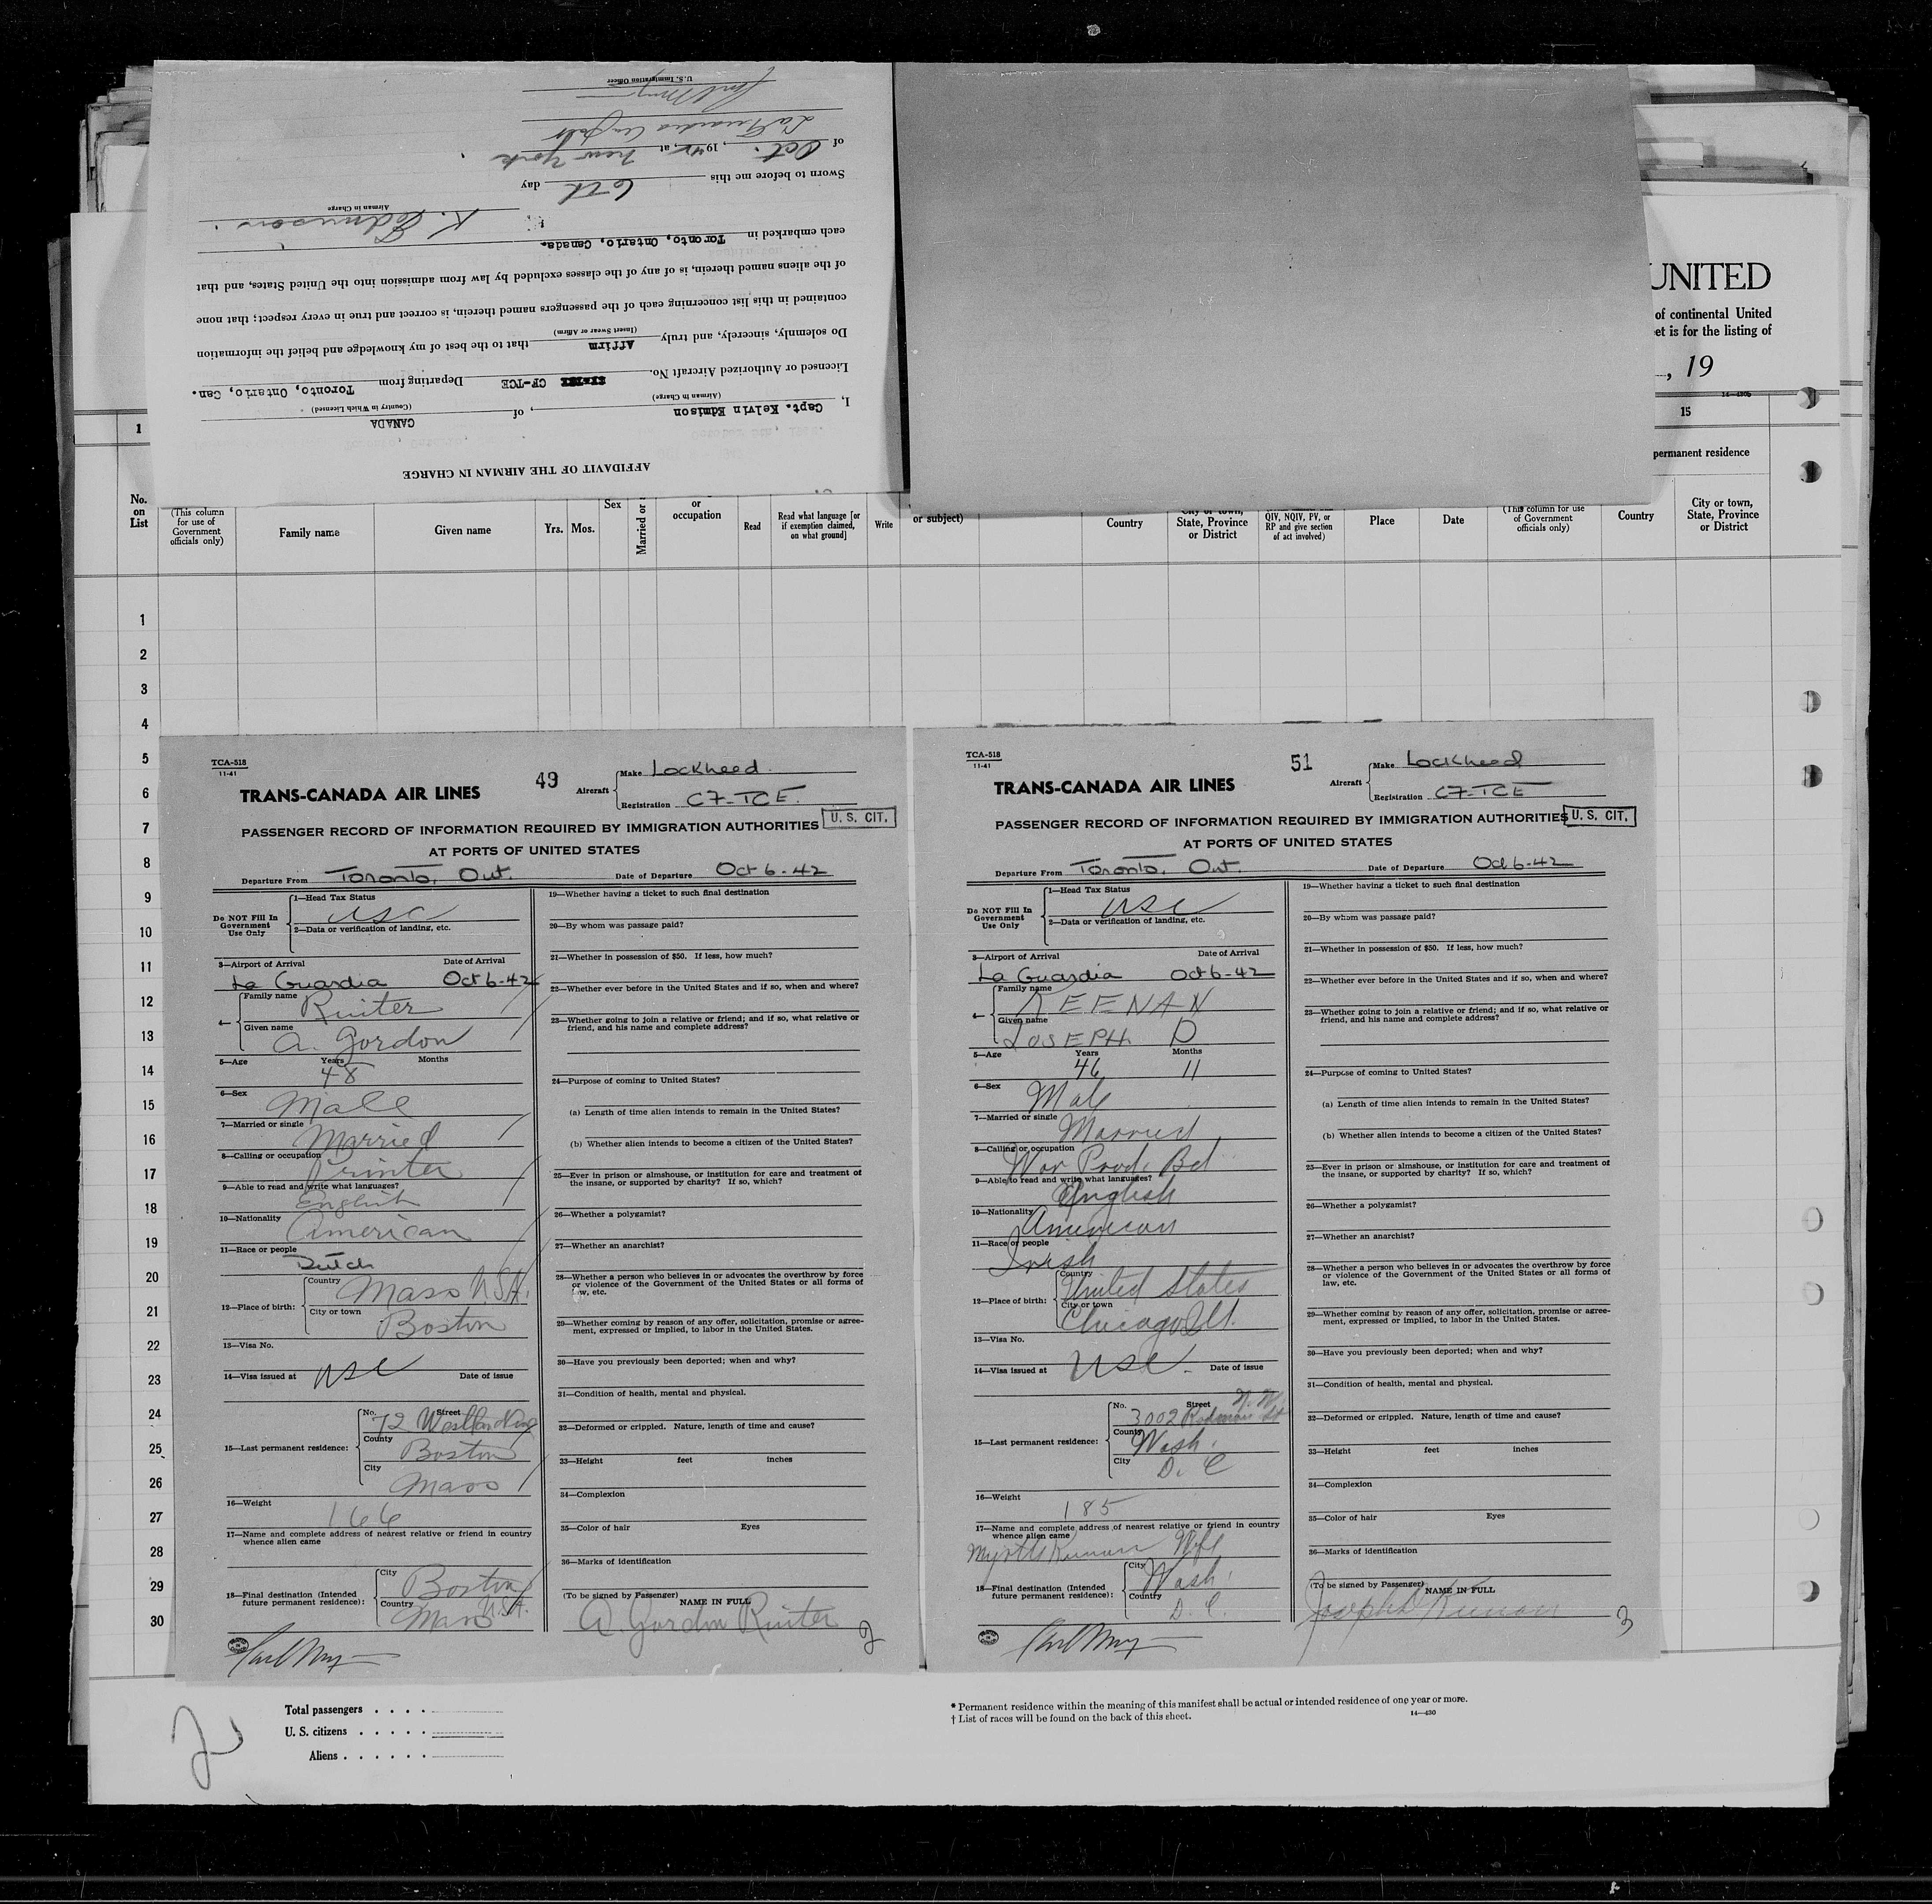 AFFIDAVIT OF THE AIRMAN IN CHARGE
I, Capt. Kelvin Edmison, of CANADA
(Airman in Charge) (Country in Which Licensed)
Licensed or Authorized Aircraft No. CF-TCE Departing from Toronto, Ontario, Can.
Do solemnly, sincerely, and truly Affirm that to the best of my knowledge and belief the information
(Insert Swear or Affirm)
contained in this list concerning each of the passengers named therein, is correct and true in every respect; that none
of the aliens named therein, is of any of the classes excluded by law from admission into the United States, and that
each embarked in Toronto, Ontario, Canada.
K. Edmison
Airman in Charge
Sworn to before me this 6th day
of Oct., 1942, at New York
La Guardia
U.S. Immigration Officer
UNITED
of continental United
et is for the listing of
, 19
14—430b
1
15
permanent residence
No. on List
(This column for use of Government officials only)
Family name
Given name
Yrs.
Mos.
Sex
Married or
or occupation
Read
Read what language [or if exemption claimed, on what ground]
Write
or subject)
Country
City or town, State, Province or District
QIV, NQIV, PV, or RP and give section of act involved)
Place
Date
(This column for use of Government officials only)
Country
City or town, State, Province or District
1
2
3
4
5
6
7
8
9
10
11
12
13
14
15
16
17
18
19
20
21
22
23
24
25
26
27
28
29
30
TCA-518
11-41
49
TRANS-CANADA AIR LINES
Aircraft
Make Lockheed
Registration CF-TCE
U. S. CIT.
PASSENGER RECORD OF INFORMATION REQUIRED BY IMMIGRATION AUTHORITIES
AT PORTS OF UNITED STATES
Departure From Toronto, Ont. Date of Departure Oct 6-42
Do NOT Fill In Government Use Only
1—Head Tax Status
USC
2—Data or verification of landing, etc.
3—Airport of Arrival Date of Arrival
La Guardia Oct 6-42
4—
Family name
Ruiter
Given name
A. Gordon
5—Age Years Months
48
6—Sex
Male
7—Married or single
Married
8—Calling or occupation
Printer
9—Able to read and write what languages?
English
10—Nationality
American
11—Race or people
Dutch
12—Place of birth:
Country
Mass U.S.A.
City or town
Boston
13—Visa No.
14—Visa issued at USC Date of issue
15—Last permanent residence:
No. Street
72 Westland Ave
County
Boston
City
Mass
16—Weight
166
17—Name and complete address of nearest relative or friend in country
whence alien came
18—Final destination (Intended future permanent residence):
City
Boston
Country
Mass U.S.A.
19—Whether having a ticket to such final destination
20—By whom was passage paid?
21—Whether in possession of $50. If less, how much?
22—Whether ever before in the United States and if so, when and where?
23—Whether going to join a relative or friend; and if so, what relative or
friend, and his name and complete address?
24—Purpose of coming to United States?
(a) Length of time alien intends to remain in the United States?
(b) Whether alien intends to become a citizen of the United States?
25—Ever in prison or almshouse, or institution for care and treatment of
the insane, or supported by charity? If so, which?
26—Whether a polygamist?
27—Whether an anarchist?
28—Whether a person who believes in or advocates the overthrow by force
or violence of the Government of the United States or all forms of
law, etc.
29—Whether coming by reason of any offer, solicitation, promise or agree-
ment, expressed or implied, to labor in the United States.
30—Have you previously been deported; when and why?
31—Condition of health, mental and physical.
32—Deformed or crippled. Nature, length of time and cause?
33—Height feet inches
34—Complexion
35—Color of hair Eyes
36—Marks of identification
(To be signed by Passenger) NAME IN FULL
A. Gordon Ruiter
2
TCA-518
11-41
51
TRANS-CANADA AIR LINES
Aircraft
Make Lockheed
Registration CF-TCE
U. S. CIT.
PASSENGER RECORD OF INFORMATION REQUIRED BY IMMIGRATION AUTHORITIES
AT PORTS OF UNITED STATES
Departure From Toronto, Ont. Date of Departure Oct 6-42
Do NOT Fill In Government Use Only
1—Head Tax Status
USC
2—Data or verification of landing, etc.
3—Airport of Arrival Date of Arrival
La Guardia Oct 6-42
4—
Family name
KEENAN
Given name
JOSEPH D
5—Age Years Months
46 11
6—Sex
Male
7—Married or single
Married
8—Calling or occupation
War Prod. Bd
9—Able to read and write what languages?
English
10—Nationality
American
11—Race or people
Irish
12—Place of birth:
Country
United States
City or town
Chicago Ill.
13—Visa No.
14—Visa issued at USC Date of issue
15—Last permanent residence:
No. Street
3002 Rodman St N.W.
County
Wash.
City
D. C
16—Weight
185
17—Name and complete address of nearest relative or friend in country
whence alien came
Myrtle Keenan Wife
18—Final destination (Intended future permanent residence):
City
Wash.
Country
D. C.
19—Whether having a ticket to such final destination
20—By whom was passage paid?
21—Whether in possession of $50. If less, how much?
22—Whether ever before in the United States and if so, when and where?
23—Whether going to join a relative or friend; and if so, what relative or
friend, and his name and complete address?
24—Purpose of coming to United States?
(a) Length of time alien intends to remain in the United States?
(b) Whether alien intends to become a citizen of the United States?
25—Ever in prison or almshouse, or institution for care and treatment of
the insane, or supported by charity? If so, which?
26—Whether a polygamist?
27—Whether an anarchist?
28—Whether a person who believes in or advocates the overthrow by force
or violence of the Government of the United States or all forms of
law, etc.
29—Whether coming by reason of any offer, solicitation, promise or agree-
ment, expressed or implied, to labor in the United States.
30—Have you previously been deported; when and why?
31—Condition of health, mental and physical.
32—Deformed or crippled. Nature, length of time and cause?
33—Height feet inches
34—Complexion
35—Color of hair Eyes
36—Marks of identification
(To be signed by Passenger) NAME IN FULL
Joseph D Keenan
3
2
Total passengers . . . .
U. S. citizens . . . . .
Aliens . . . . . .
* Permanent residence within the meaning of this manifest shall be actual or intended residence of one year or more.
† List of races will be found on the back of this sheet.
14—430